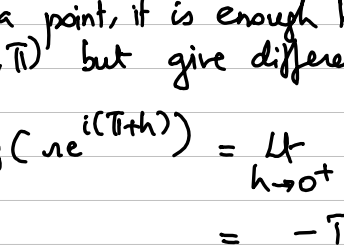 a point, it is enough
π) but give differe
(re^{i(π+h)}) = Lt
h→0⁺
= -π